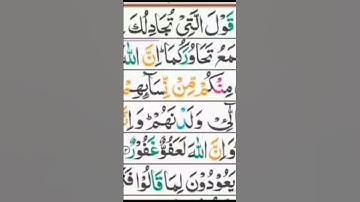 قَوْلَ الَّتِيْ تُجَادِلُكَ
مَعُ تَحَاوُرَكُمَا ؕ اِنَّ اللّٰهَ
مِنْكُمْ مِّنْ نِّسَآىِٕهِمْ
ـِٔيْ وَلَدْنَهُمْ ؕ وَاِنَّ
وَاِنَّ اللّٰهَ لَعَفُوٌّ غَفُوْرٌ
يَعُوْدُوْنَ لِمَا قَالُوْا